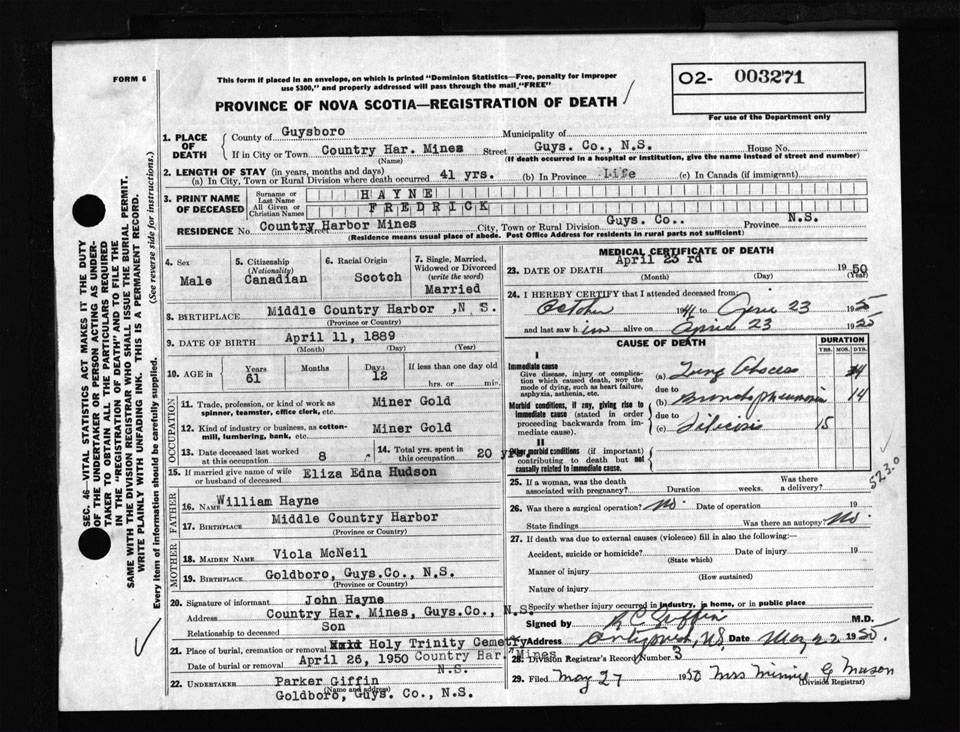 FORM 6
This form if placed in an envelope, on which is printed "Dominion Statistics—Free, penalty for improper
use $300," and properly addressed will pass through the mail, "FREE"
PROVINCE OF NOVA SCOTIA—REGISTRATION OF DEATH
O2- 003271
For use of the Department only
SEC. 46—VITAL STATISTICS ACT MAKES IT THE DUTY
OF THE UNDERTAKER OR PERSON ACTING AS UNDER-
TAKER TO OBTAIN ALL THE PARTICULARS REQUIRED
IN THE "REGISTRATION OF DEATH" AND TO FILE THE
SAME WITH THE DIVISION REGISTRAR WHO SHALL ISSUE THE BURIAL PERMIT.
WRITE PLAINLY WITH UNFADING INK. THIS IS A PERMANENT RECORD.
Every item of Information should be carefully supplied. (See reverse side for instructions.)
1. PLACE OF DEATH
County of Guysboro Municipality of
If in City or Town Country Har. Mines Street Guys. Co., N.S. House No.
(Name) (If death occurred in a hospital or institution, give the name instead of street and number)
2. LENGTH OF STAY (in years, months and days)
(a) In City, Town or Rural Division where death occurred 41 yrs. (b) In Province Life (c) In Canada (if immigrant)
3. PRINT NAME OF DECEASED
Surname or Last Name HAYNE
All Given or Christian Names FREDRICK
RESIDENCE No. Country Harbor Mines Street City, Town or Rural Division Guys. Co.. Province N.S.
(Residence means usual place of abode. Post Office Address for residents in rural parts not sufficient)
4. Sex
Male
5. Citizenship
(Nationality)
Canadian
6. Racial Origin
Scotch
7. Single, Married,
Widowed or Divorced
(write the word)
Married
8. BIRTHPLACE Middle Country Harbor ,N S.
(Province or Country)
9. DATE OF BIRTH April 11, 1889
(Month) (Day) (Year)
10. AGE in Years 61 Months Days 12 If less than one day old
hrs. or min.
OCCUPATION
11. Trade, profession, or kind of work as
spinner, teamster, office clerk, etc. Miner Gold
12. Kind of industry or business, as cotton-
mill, lumbering, bank, etc. Miner Gold
13. Date deceased last worked
at this occupation 8
14. Total yrs. spent in
this occupation 20 yrs.
15. If married give name of wife
or husband of deceased Eliza Edna Hudson
FATHER
16. NAME William Hayne
17. BIRTHPLACE Middle Country Harbor
(Province or Country)
MOTHER
18. MAIDEN NAME Viola McNeil
19. BIRTHPLACE Goldboro, Guys.Co., N.S.
(Province or Country)
20. Signature of informant John Hayne
Address Country Har. Mines, Guys.Co., N.S.
Relationship to deceased Son
21. Place of burial, cremation or removal Holy Trinity Cemetry
Date of burial or removal April 26, 1950 Country Har. Mines
N.S.
22. UNDERTAKER Parker Giffin
(Name and address)
Goldboro, Guys. Co., N.S.
MEDICAL CERTIFICATE OF DEATH
23. DATE OF DEATH April 23 rd 1950
(Month) (Day) (Year)
24. I HEREBY CERTIFY that I attended deceased from:
October 19 to April 23 1950
and last saw him alive on April 23 1950
CAUSE OF DEATH
DURATION
YRS. MOS. DYS.
I
Immediate cause
Give disease, injury or complica-
tion which caused death, NOT the
mode of dying, such as heart failure,
asphyxia, asthenia, etc.
(a) Lung Abscess
due to
Morbid conditions, if any, giving rise to
immediate cause (stated in order
proceeding backwards from im-
mediate cause).
(b) Bronchopneumonia 14
due to
(c) Silicosis 15
II
Other morbid conditions (if important)
contributing to death but not
causally related to immediate cause.
523.0
25. If a woman, was the death
associated with pregnancy? Duration weeks. Was there
a delivery?
26. Was there a surgical operation? No. Date of operation 19
State findings Was there an autopsy? No.
27. If death was due to external causes (violence) fill in also the following:—
Accident, suicide or homicide? Date of injury 19
(State which)
Manner of injury
(How sustained)
Nature of injury
Specify whether injury occurred in industry, in home, or in public place
Signed by Giffin M.D.
Address Antigonish, N.S. Date May 22 1950.
28. Division Registrar's Record Number 3
29. Filed May 27 1950 Mrs Minnie G Mason
(Division Registrar)